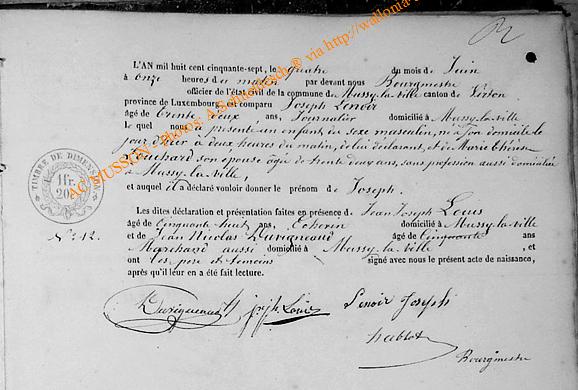 L'AN mil huit cent cinquante-sept, le quatre du mois de Juin
à onze heures du matin par devant nous Bourgmestre
officier de l'état civil de la commune de Mussy-la-ville canton de Virton
province de Luxembourg, est comparu Joseph Lenoir
âgé de trente deux ans, Journalier domicilié à Mussy-la-ville
lequel nous a présenté un enfant de sexe masculin, né à son domicile le
jour d'hier à deux heures du matin, de lui déclarant, et de Marie Thérèse
Bouchard son épouse âgée de trente deux ans, sans profession aussi domiciliée
à Mussy-la-ville,
et auquel il a déclaré vouloir donner le prénom de Joseph.
Les dites déclaration et présentation faites en présence de Jean Joseph Louis
âgé de Cinquante huit ans, domicilié à Mussy-la-ville
et de Jean Nicolas Duvigneaud âgé de Cinquante ans
Marchand aussi domicilié à Mussy-la-ville, et
ont les père et témoins signé avec nous le présent acte de naissance,
après qu'il leur en a été fait lecture.
TIMBRE DE DIMENSION
1 fr.
20
N° 12.
Lenoir Joseph
Bourgmestre
AC MUSSON - Photos: A. via http://wallonia